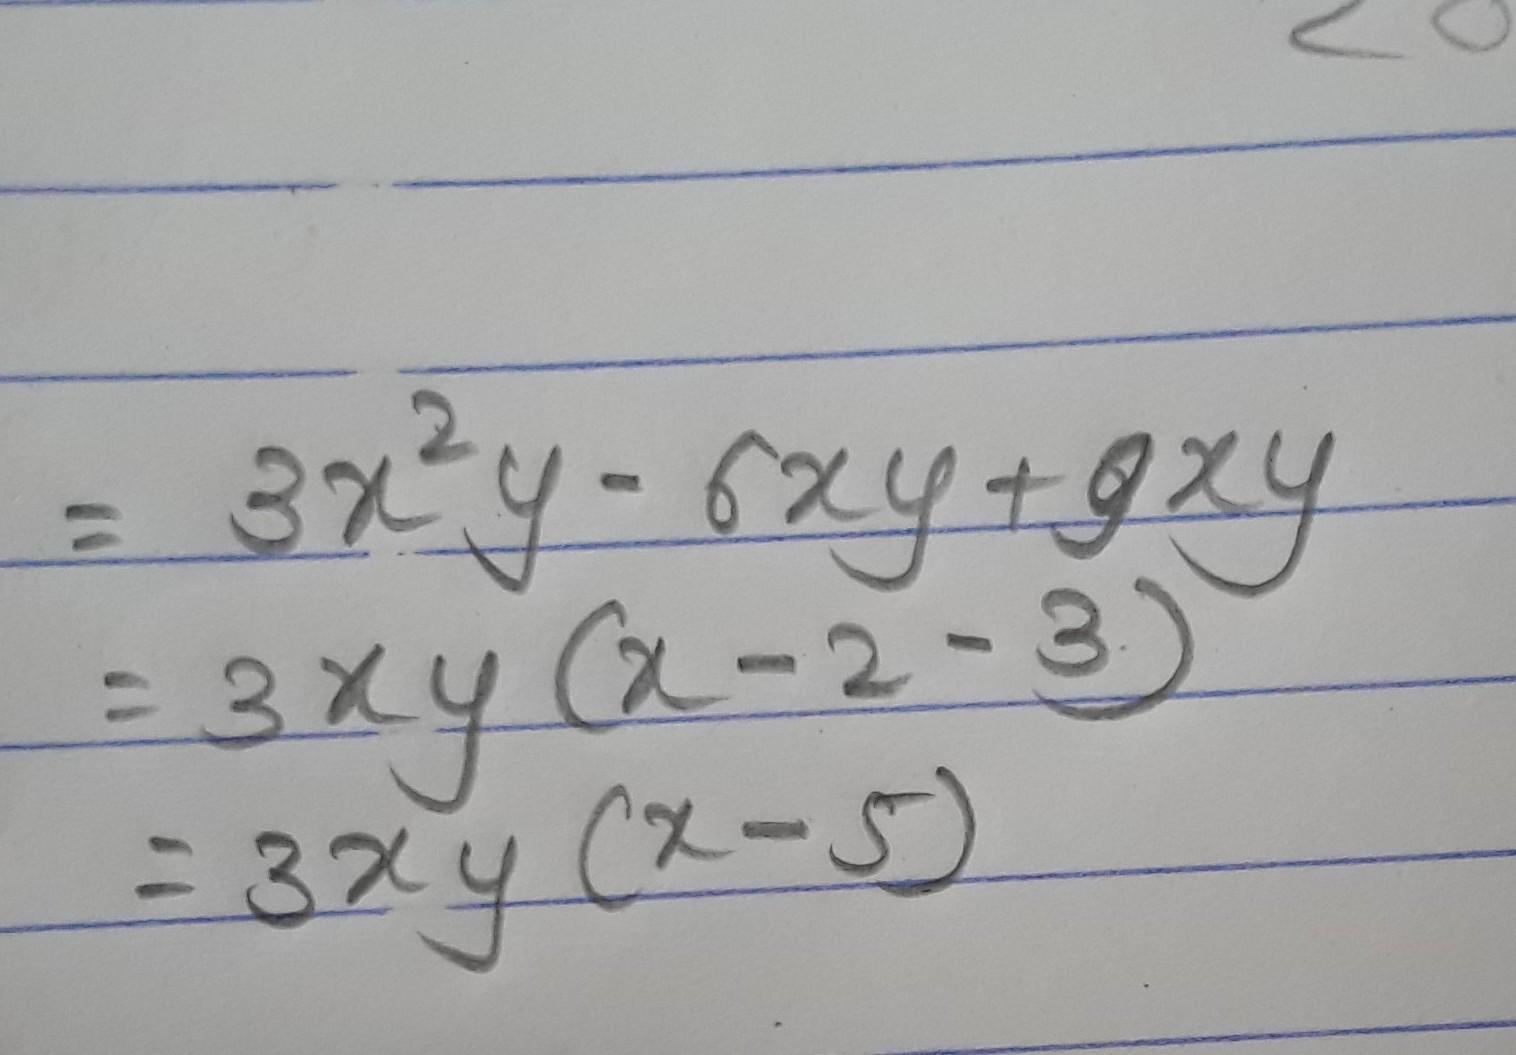 = 3x²y - 6xy + 9xy
= 3xy (x - 2 - 3)
= 3xy (x - 5)